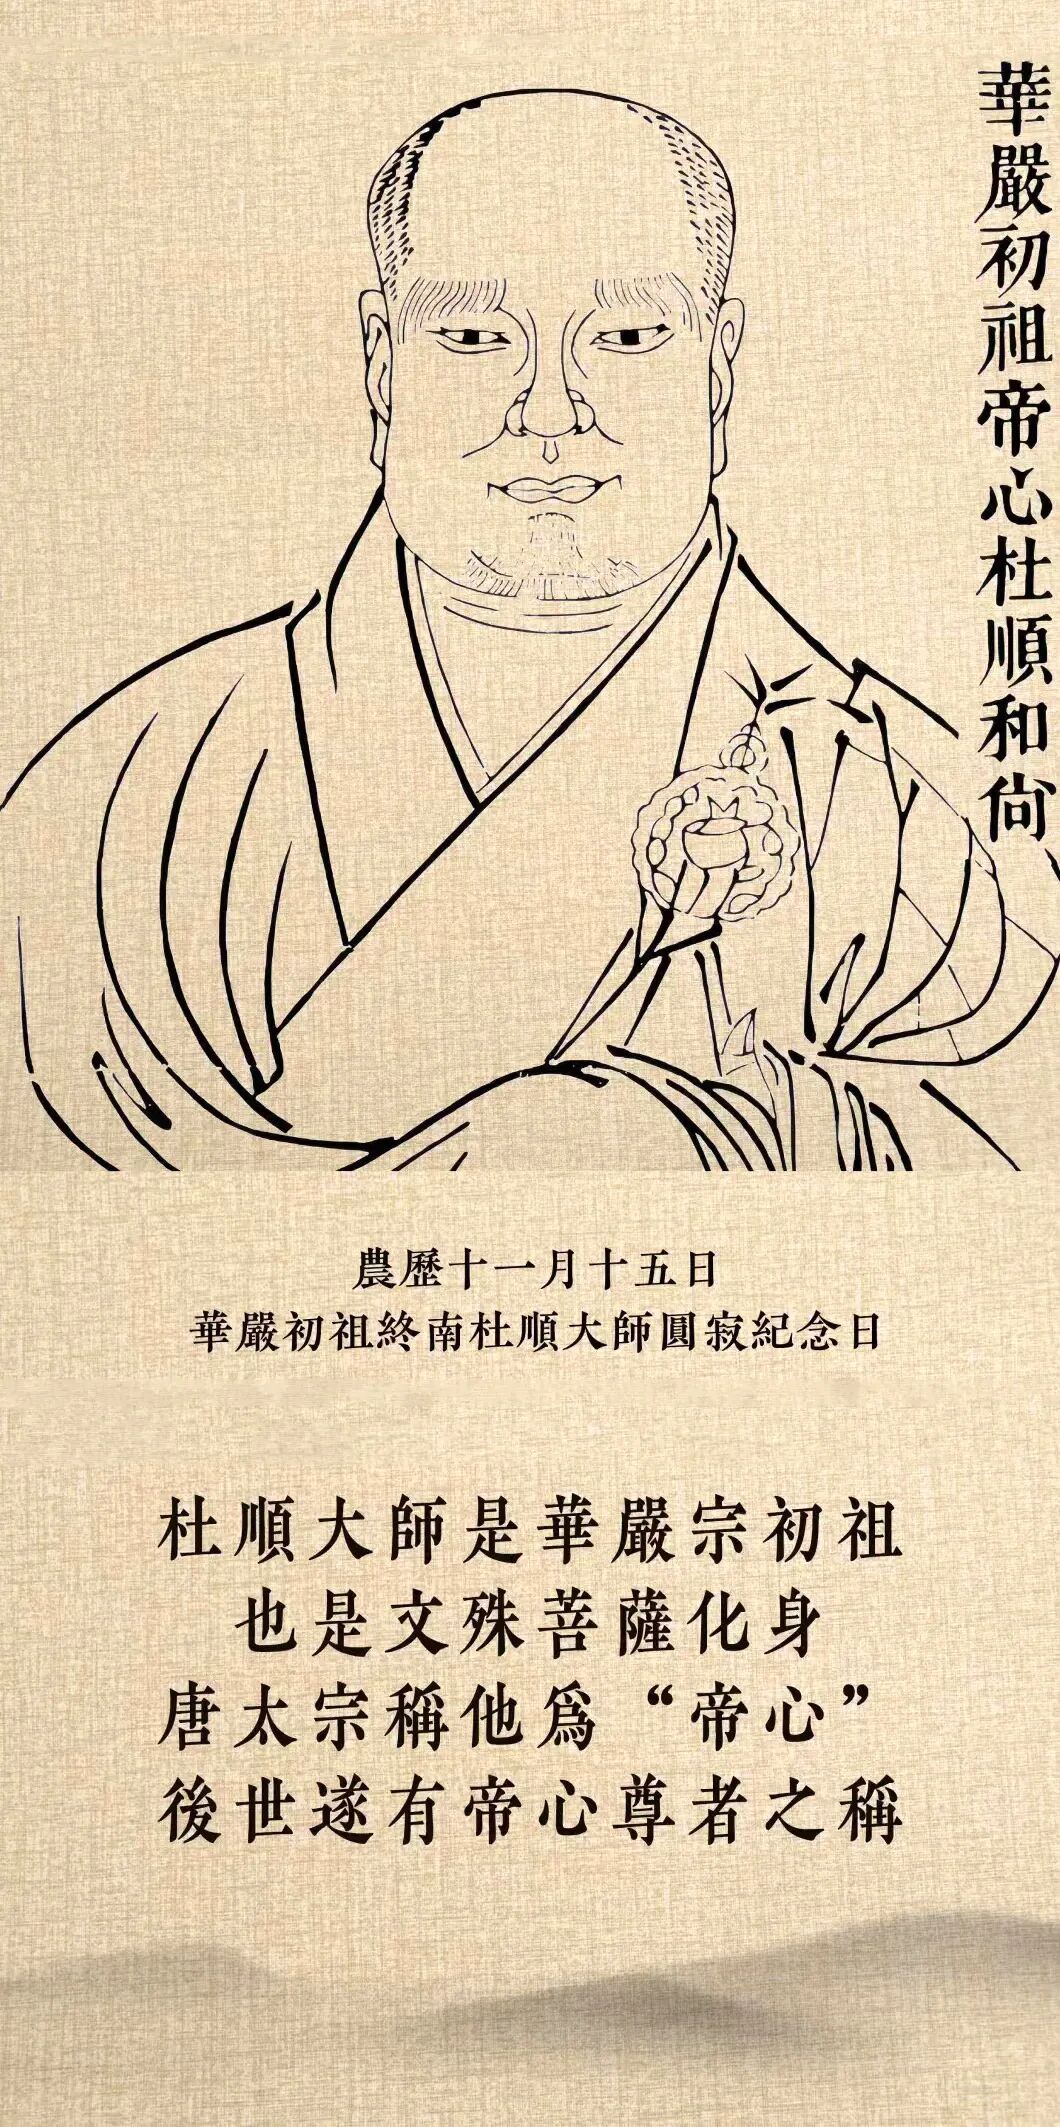 華嚴初祖帝心杜順和尙
農歷十一月十五日
華嚴初祖終南杜順大師圓寂紀念日
杜順大師是華嚴宗初祖
也是文殊菩薩化身
唐太宗稱他爲“帝心”
後世遂有帝心尊者之稱